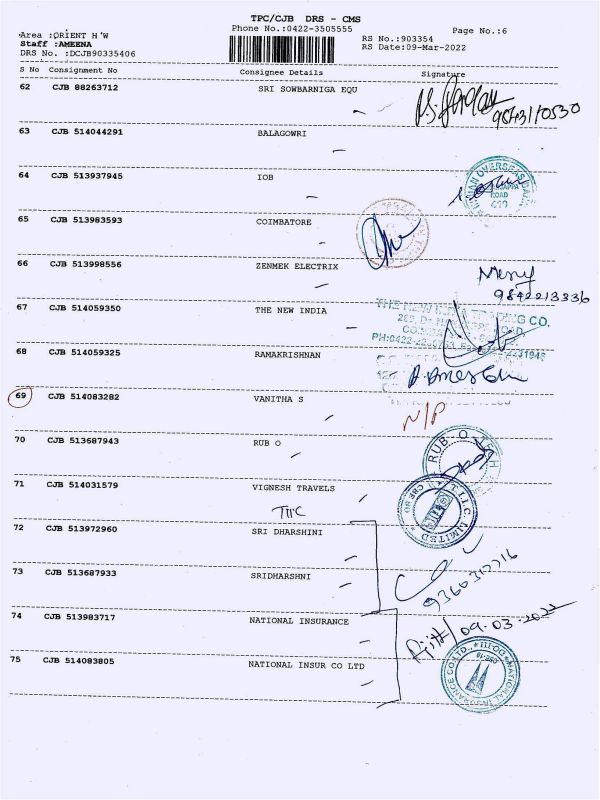 TPC/CJB DRS - CMS
Area :ORIENT H'W
Phone No.:0422-3505555
Page No.:6
Staff :AMEENA
RS No.:903354
DRS No. :DCJB90335406
RS Date:09-Mar-2022
S No Consignment No Consignee Details Signature
62 CJB 88263712 SRI SOWBARNIGA EQU
9843110530
63 CJB 514044291 BALAGOWRI
64 CJB 513937945 IOB
ROAD
65 CJB 513983593 COIMBATORE
66 CJB 513998556 ZENMEK ELECTRIX
9842213336
67 CJB 514059350 THE NEW INDIA
THE NEW INDIA TRADING CO.
68 CJB 514059325 RAMAKRISHNAN
69 CJB 514083282 VANITHA S
N/P
70 CJB 513687943 RUB O
RUB-O-TECH
71 CJB 514031579 VIGNESH TRAVELS
TIIC
T.I.I.C. LIMITED
72 CJB 513972960 SRI DHARSHINI
73 CJB 513687933 SRIDHARSHNI
74 CJB 513983717 NATIONAL INSURANCE
09.03.2022
75 CJB 514083805 NATIONAL INSUR CO LTD
NATIONAL INSURANCE CO LTD.